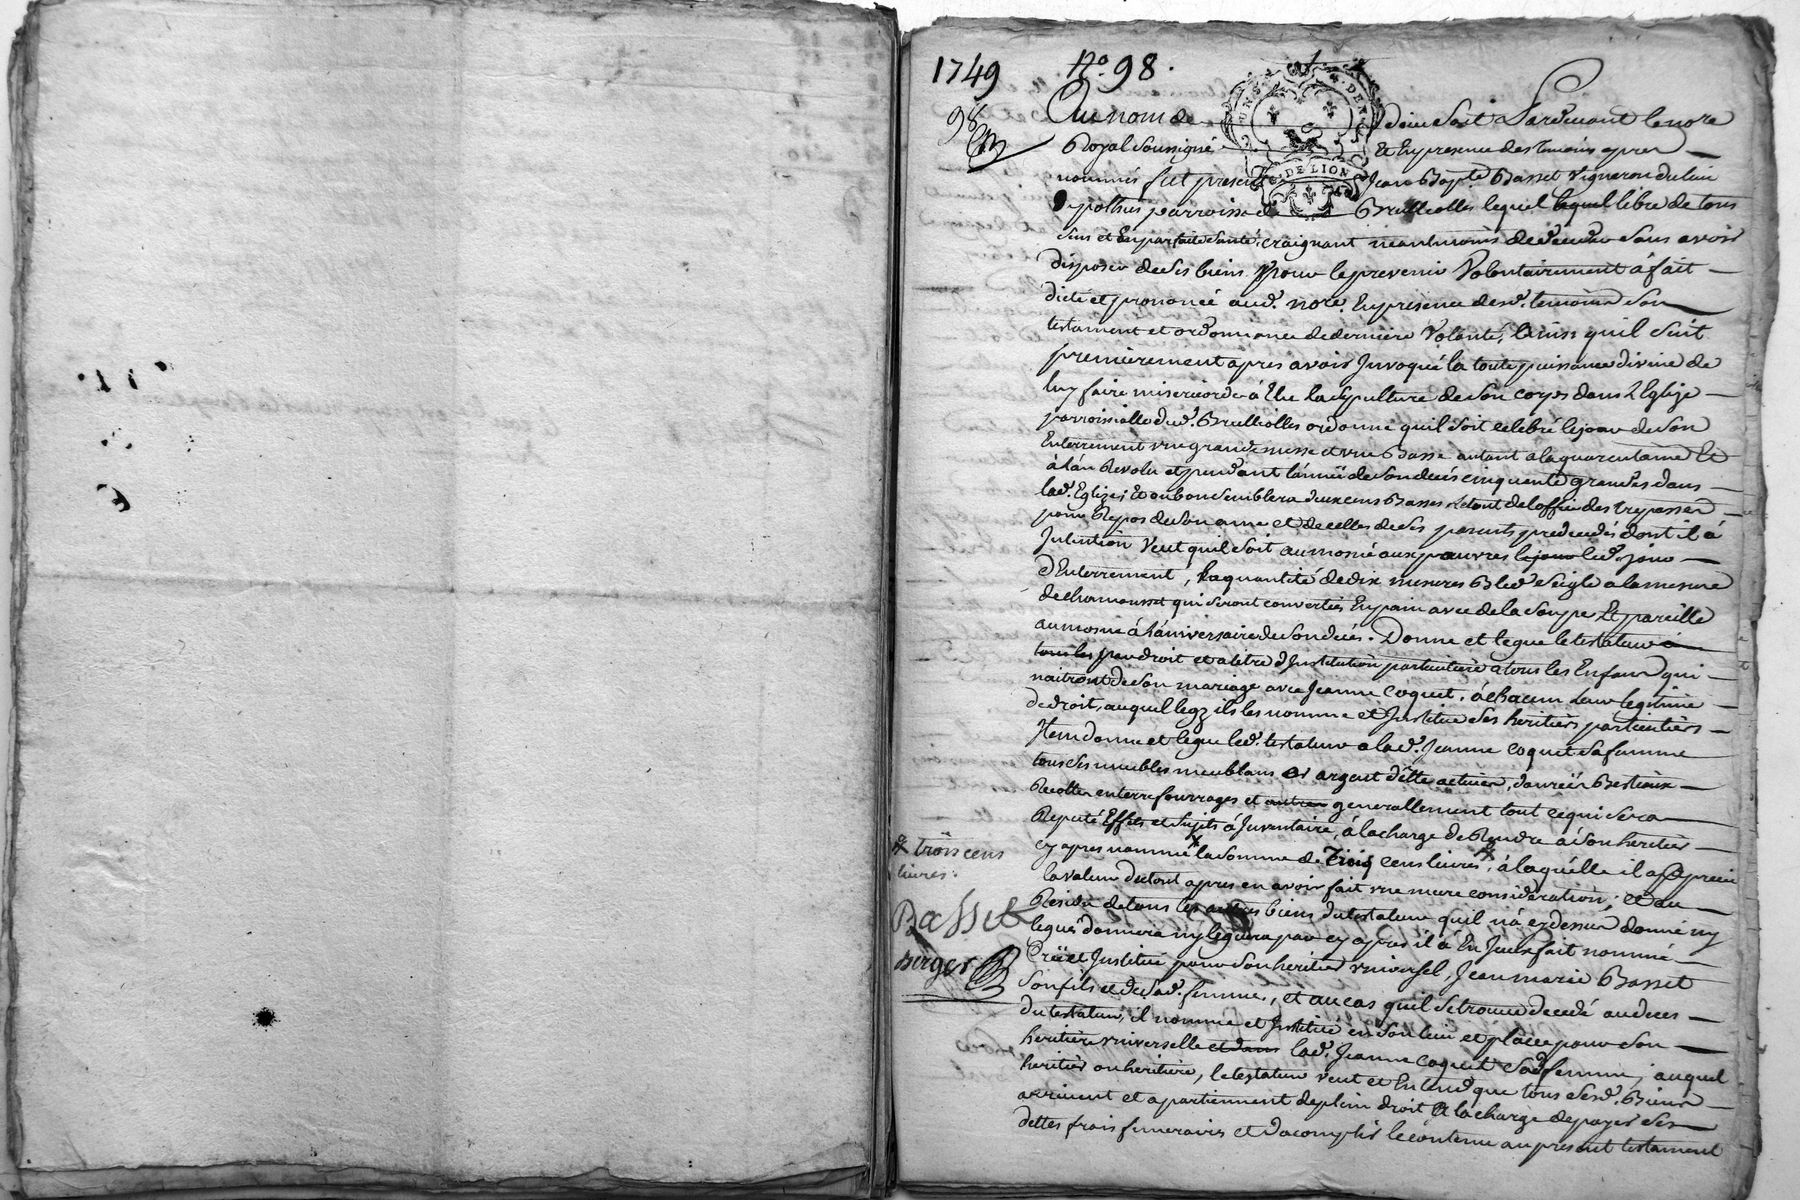 1749 No. 98.
98
Au nom de Dieu soit Pardevant le nore
Royal soussigné Et En presence des temoins apres
nommés fut present Jean Bapte Basset vigneron du lieu
parroisse de Brullioles lequel lequel libre de tous
sens et En parfaite santé, craignant neantmoins de deceder sans avoir
disposer de ses biens pour le prevenir volontairement à fait
dicté et prononcé aud. nore. En presence desd. temoins son
testament et ordonnance de derniere volonté, Comme quil suit
premierement apres avoir Invoqué la toute puissance divine de
luy faire misericorde à Elu la sepulture de son corps dans l'Eglise
parroissialle dud. Brullioles ordonne quil soit celebré le jour de son
Enterrement une grande messe et une Basse autant a la quarentaine Et
à l'án Revolu et pendant l'année de son decés cinquante grandes dans
lad. Eglise, Et ou bon semblera deux cens Basses Le tout de l'office des trepassés
pour Repos de son ame et de celles de ses parents predecedés dont il à
Intention Veut quil soit aumosné aux pauvres le jour led. jour
d'Enterrement, la quantité de dix mesures Bled seigle a la mesure
de chamousset qui seront converties En pain avec de la soupe Et pareille
aumosne à l'aniversaire de son decés. Donne et legue le testateur
tous les par droit et a titre d'Institution particuliere a tous les Enfans qui
naitront de son mariage avec Jeanne Coquet, à chacun leur legitime
de droit, auquel legz ils les nomme et Institue ses heritiers particuliers
Item donne et legue led. testateur a lad. Jeanne Coquet sa femme
tous ses meubles meublans or argent dètte actives, danrées Bestiaux
Recoltes en terre fourrages et autres generallement tout ce qui sera
Reputé Effets et sujets à Inventaire, à la charge de Rendre à son heritier
cy apres nommé la somme de trois cens livres, à laquélle il a apprecié
la valeur du tout apres en avoir fait une mure considération; et au
Residu de tous les autres biens du testateur quil n'à cy dessus donné ny
legué donnera ny leguera par cy apres il à En Jceux fait nommé
Créé et Institué pour son heritier universel, Jean marie Basset
son fils et de sad. femme, et au cas quil se trouve decedé au deces
du testateur, il nomme et Institue en son lieu et place pour son
heritiere universelle et dans lad. Jeanne Coquet sad femme, auquel
heritier ou heritiere, le testateur veut et Entend que tous sesd. Biens
arrivent et apartiennent de plein droit A la charge de payer ses
dettes frais funeraires et dacomplir le contenu au present testament
trois cens
livres.
Basset
Berger
DE LION